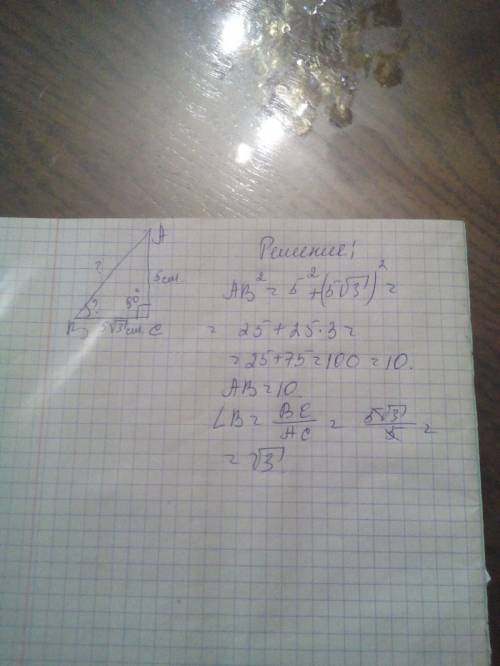 A
?
5 см
?
90°
B 5√3 см C
Решение!
AB² = 5² + (5√3)² =
= 25 + 25·3 =
= 25 + 75 = 100 = 10.
AB = 10.
∠B = BC/AC = 5√3/5 =
= √3